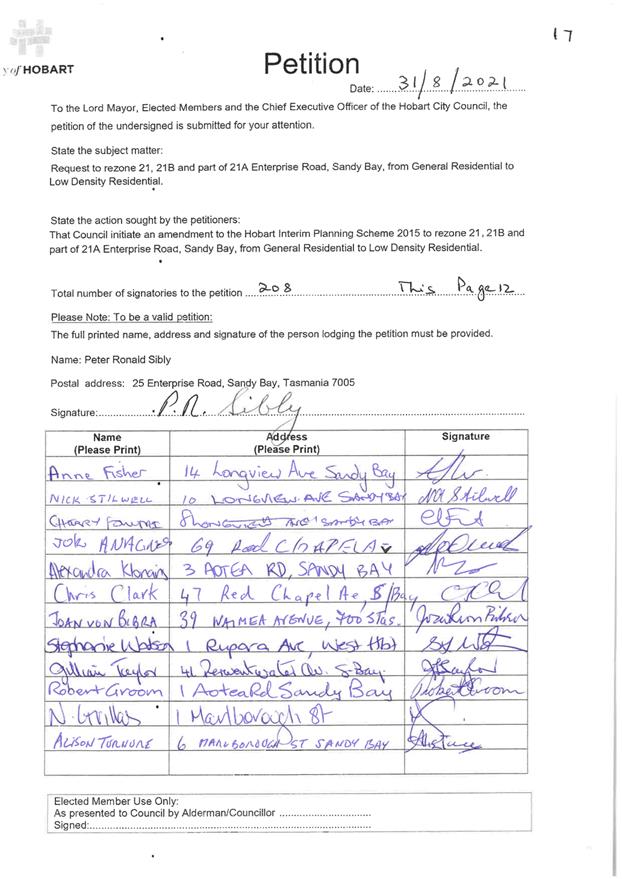 17
y of HOBART
Petition
Date: 31/8/2021
To the Lord Mayor, Elected Members and the Chief Executive Officer of the Hobart City Council, the
petition of the undersigned is submitted for your attention.
State the subject matter:
Request to rezone 21, 21B and part of 21A Enterprise Road, Sandy Bay, from General Residential to
Low Density Residential.
State the action sought by the petitioners:
That Council initiate an amendment to the Hobart Interim Planning Scheme 2015 to rezone 21, 21B and
part of 21A Enterprise Road, Sandy Bay, from General Residential to Low Density Residential.
Total number of signatories to the petition 208 This Page 12
Please Note: To be a valid petition:
The full printed name, address and signature of the person lodging the petition must be provided.
Name: Peter Ronald Sibly
Postal address: 25 Enterprise Road, Sandy Bay, Tasmania 7005
Signature: P.R. Sibly
Name Address Signature
(Please Print) (Please Print)
Anne Fisher 14 Longview Ave Sandy Bay
NICK STILWELL 10 LONGVIEW AVE SANDY BAY NA Stilwell
8 LONGVIEW AVE SANDY BAY
69
Alexandra 3 AOTEA RD, SANDY BAY
Chris Clark 47 Red Chapel Ae, S/Bay
JOAN VON BIBRA 39 WAIMEA AVENUE,
Stephanie Watson 1 Rupara Ave, West Hbt
Gillian Taylor Derwentwater Av. S-Bay.
Robert Groom 1 Aotea Rd Sandy Bay Robert Groom
N. Grillas 1 Marlborough St
ALISON TURNURE 6 MARLBOROUGH ST SANDY BAY
Elected Member Use Only:
As presented to Council by Alderman/Councillor
Signed: